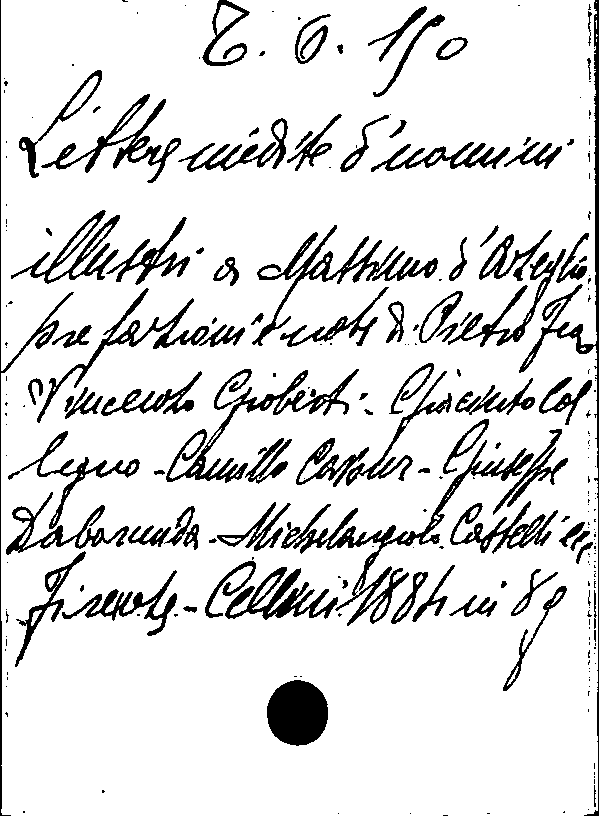 T. 6. 150
Lettere inedite d'uomini
illustri a Massimo d'Azeglio
prefazioni e note di Pietro Fea
Vincenzo Gioberti - Giacinto Col
legno - Camillo Cavour - Giuseppe
Dabormida - Michelangiolo Castelli ecc
Firenze - Cellini 1884 in 8º